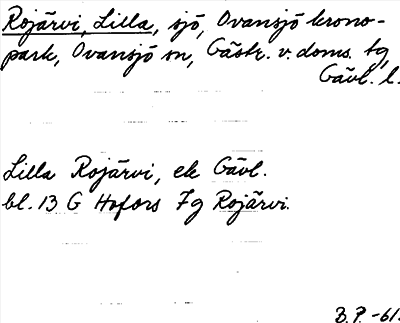 Rojärvi, Lilla, sjö, Ovansjö krono-
park, Ovansjö sn, Gästr. v. doms. tg,
Gävl. l.
Lilla Rojärvi, ek Gävl.
bl. 13 G Hofors 7g Rojärvi.
B.P. -61.